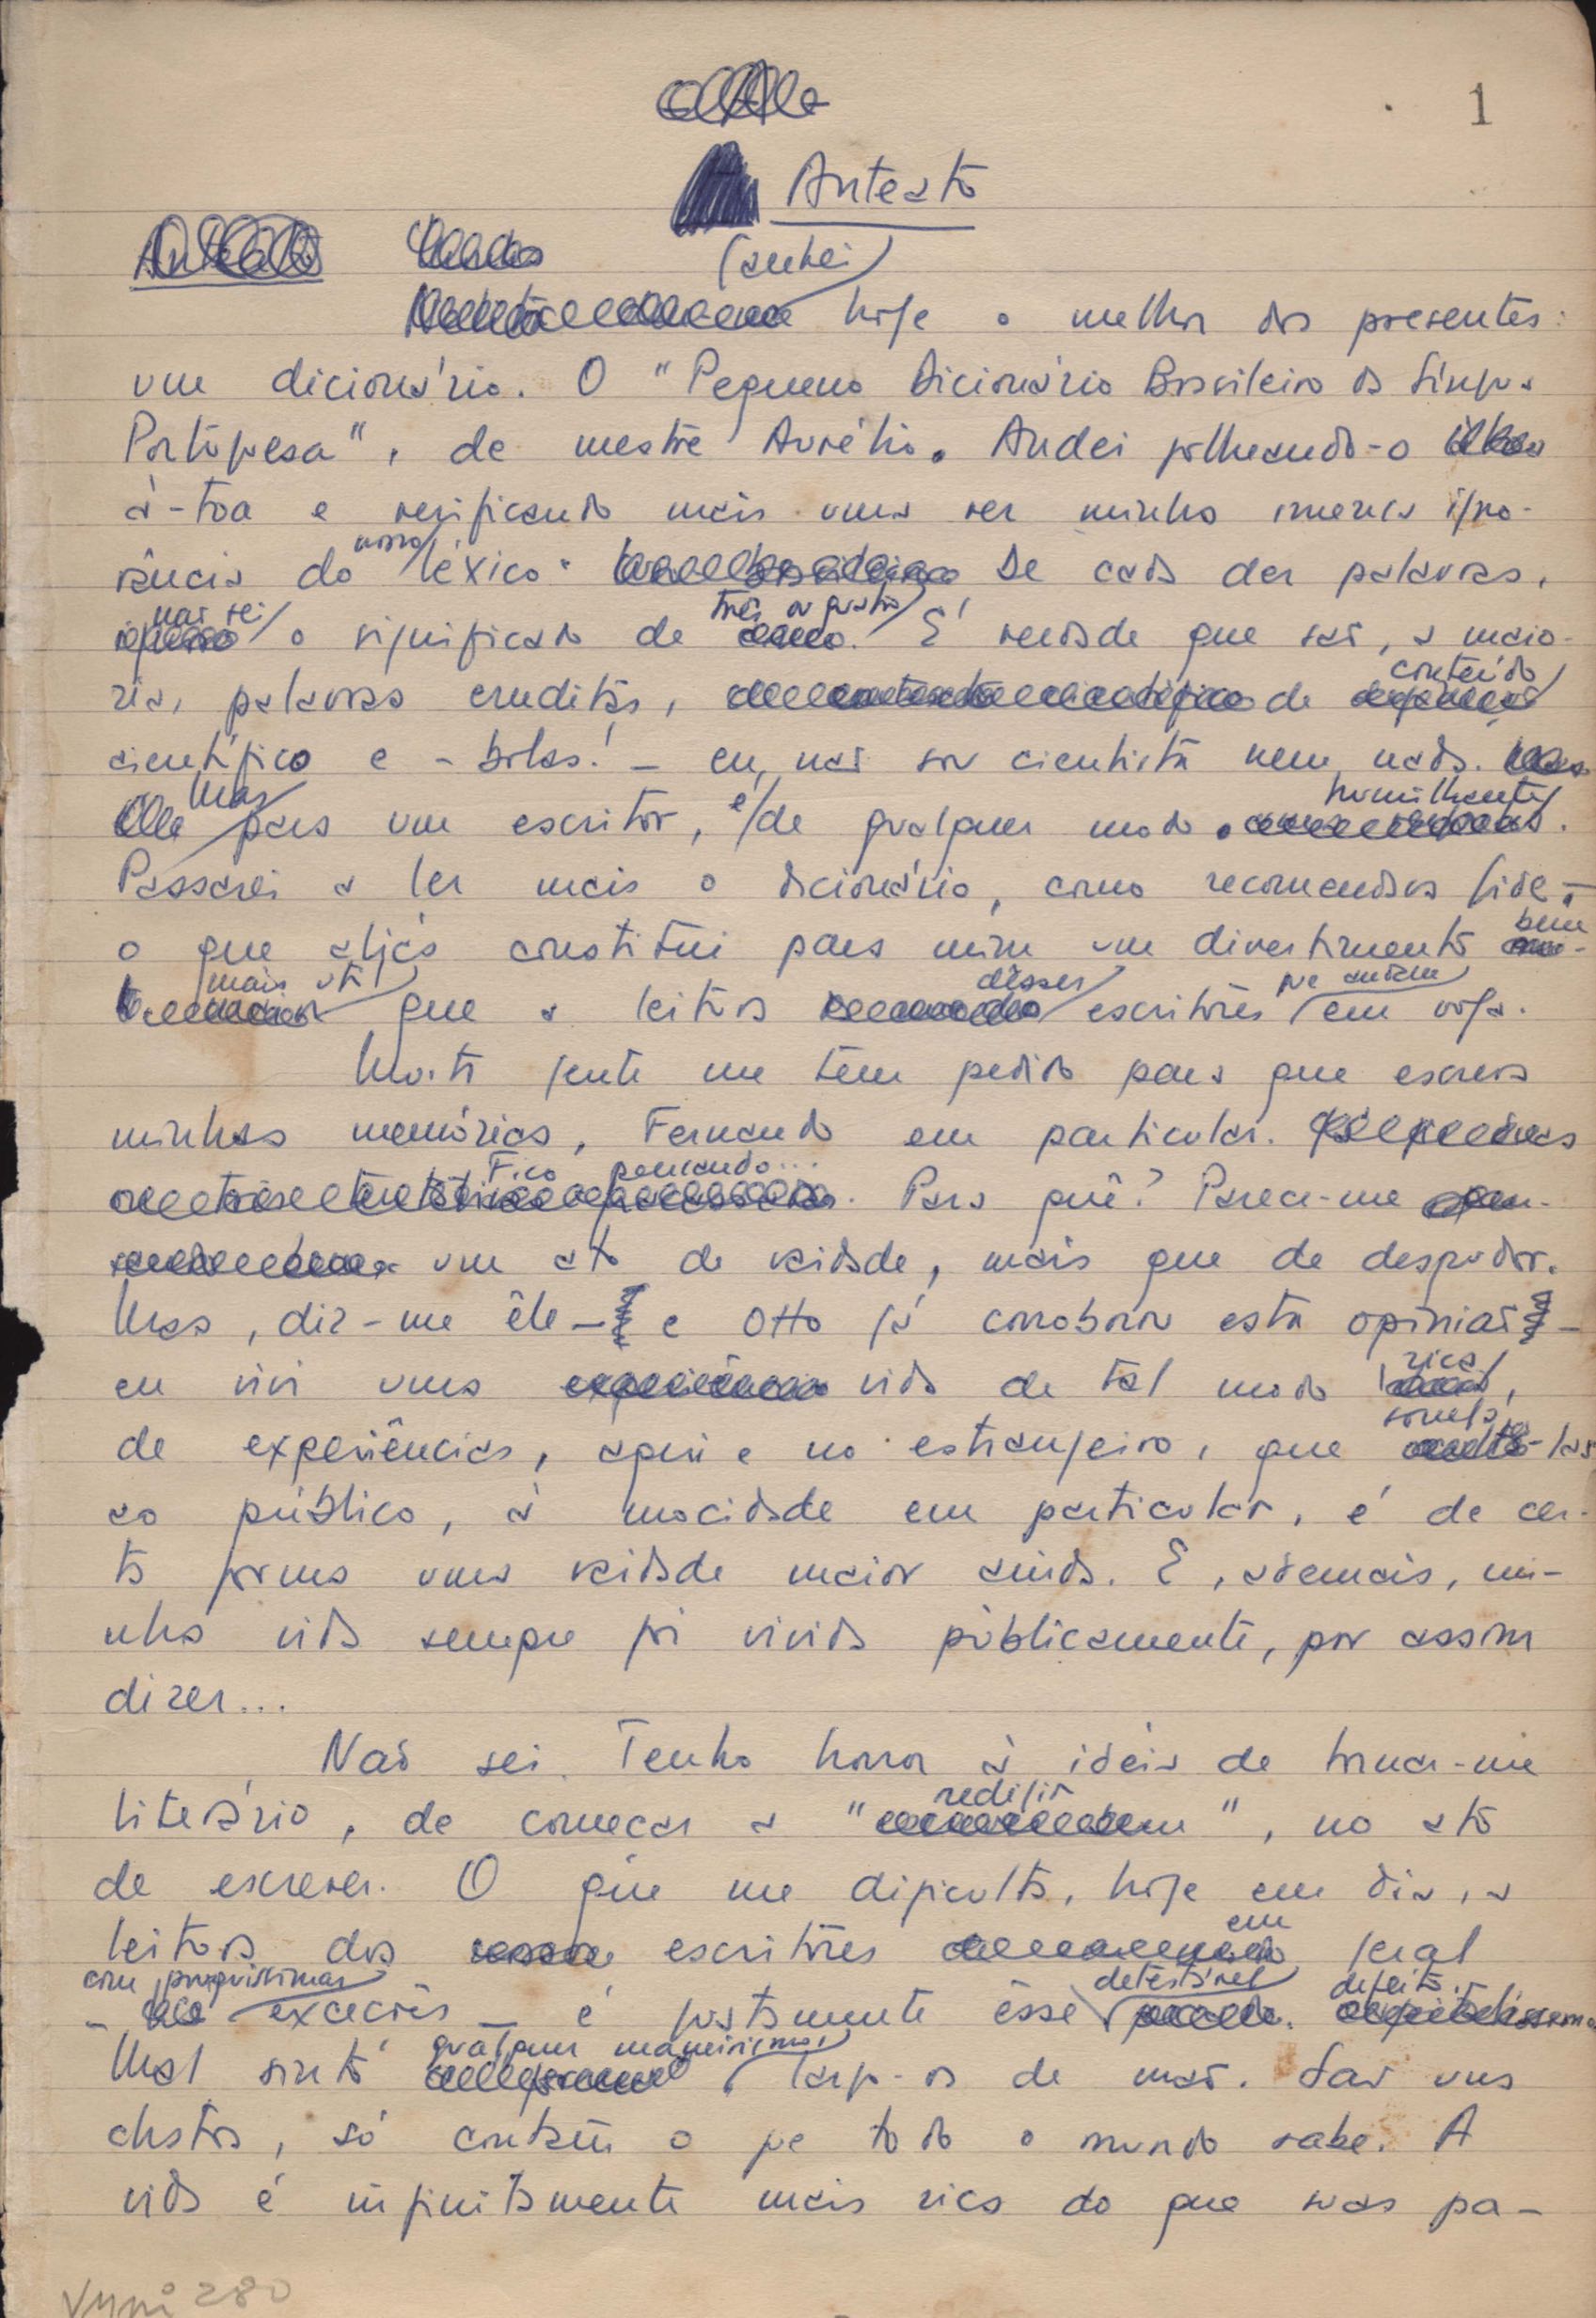 1
Antexto
(Ganhei)
hoje o melhor dos presentes:
um dicionário. O "Pequeno Dicionário Brasileiro da Língua
Portuguesa", de mestre Aurélio. Andei folheando-o
à-toa e verificando mais uma vez minha imensa igno-
rância do nosso léxico. De cada dez palavras,
não sei o significado de três ou quatro. É verdade que são, a maio-
ria, palavras eruditas, de conteúdo
científico e - bolas! - eu não sou cientista nem nada. 
Mas para um escritor, é de qualquer modo humilhante.
Passarei a ler mais o dicionário, como recomendava Gide,
o que aliás constitui para mim um divertimento bem
mais útil que a leitura dêsses escritores que andam em voga.
Muita gente me tem pedido para que escreva
minhas memórias, Fernando em particular.
Fico pensando... Para quê? Parece-me
um ato de vaidade, mais que de despudor.
Mas, diz-me êle - e Otto já corroborou esta opinião -
eu vivi uma vida de tal modo rica,
de experiências, aqui e no estrangeiro, que sonegá-las
ao público, à mocidade em particular, é de cer-
ta forma uma vaidade maior ainda. E, ademais, mi-
nha vida sempre foi vivida pùblicamente, por assim
dizer...
Não sei. Tenho horror à idéia de tornar-me
literário, de começar a "redigir", no ato
de escrever. O que me dificulta, hoje em dia, a
leitura dos escritores em geral
- com pouquíssimas exceções - é justamente êsse detestável defeito.
Mal sinto qualquer maneirismo, largo-os de mão. São uns
chatos, só contam o que todo o mundo sabe. A
vida é infinitamente mais rica do que suas pa-
280